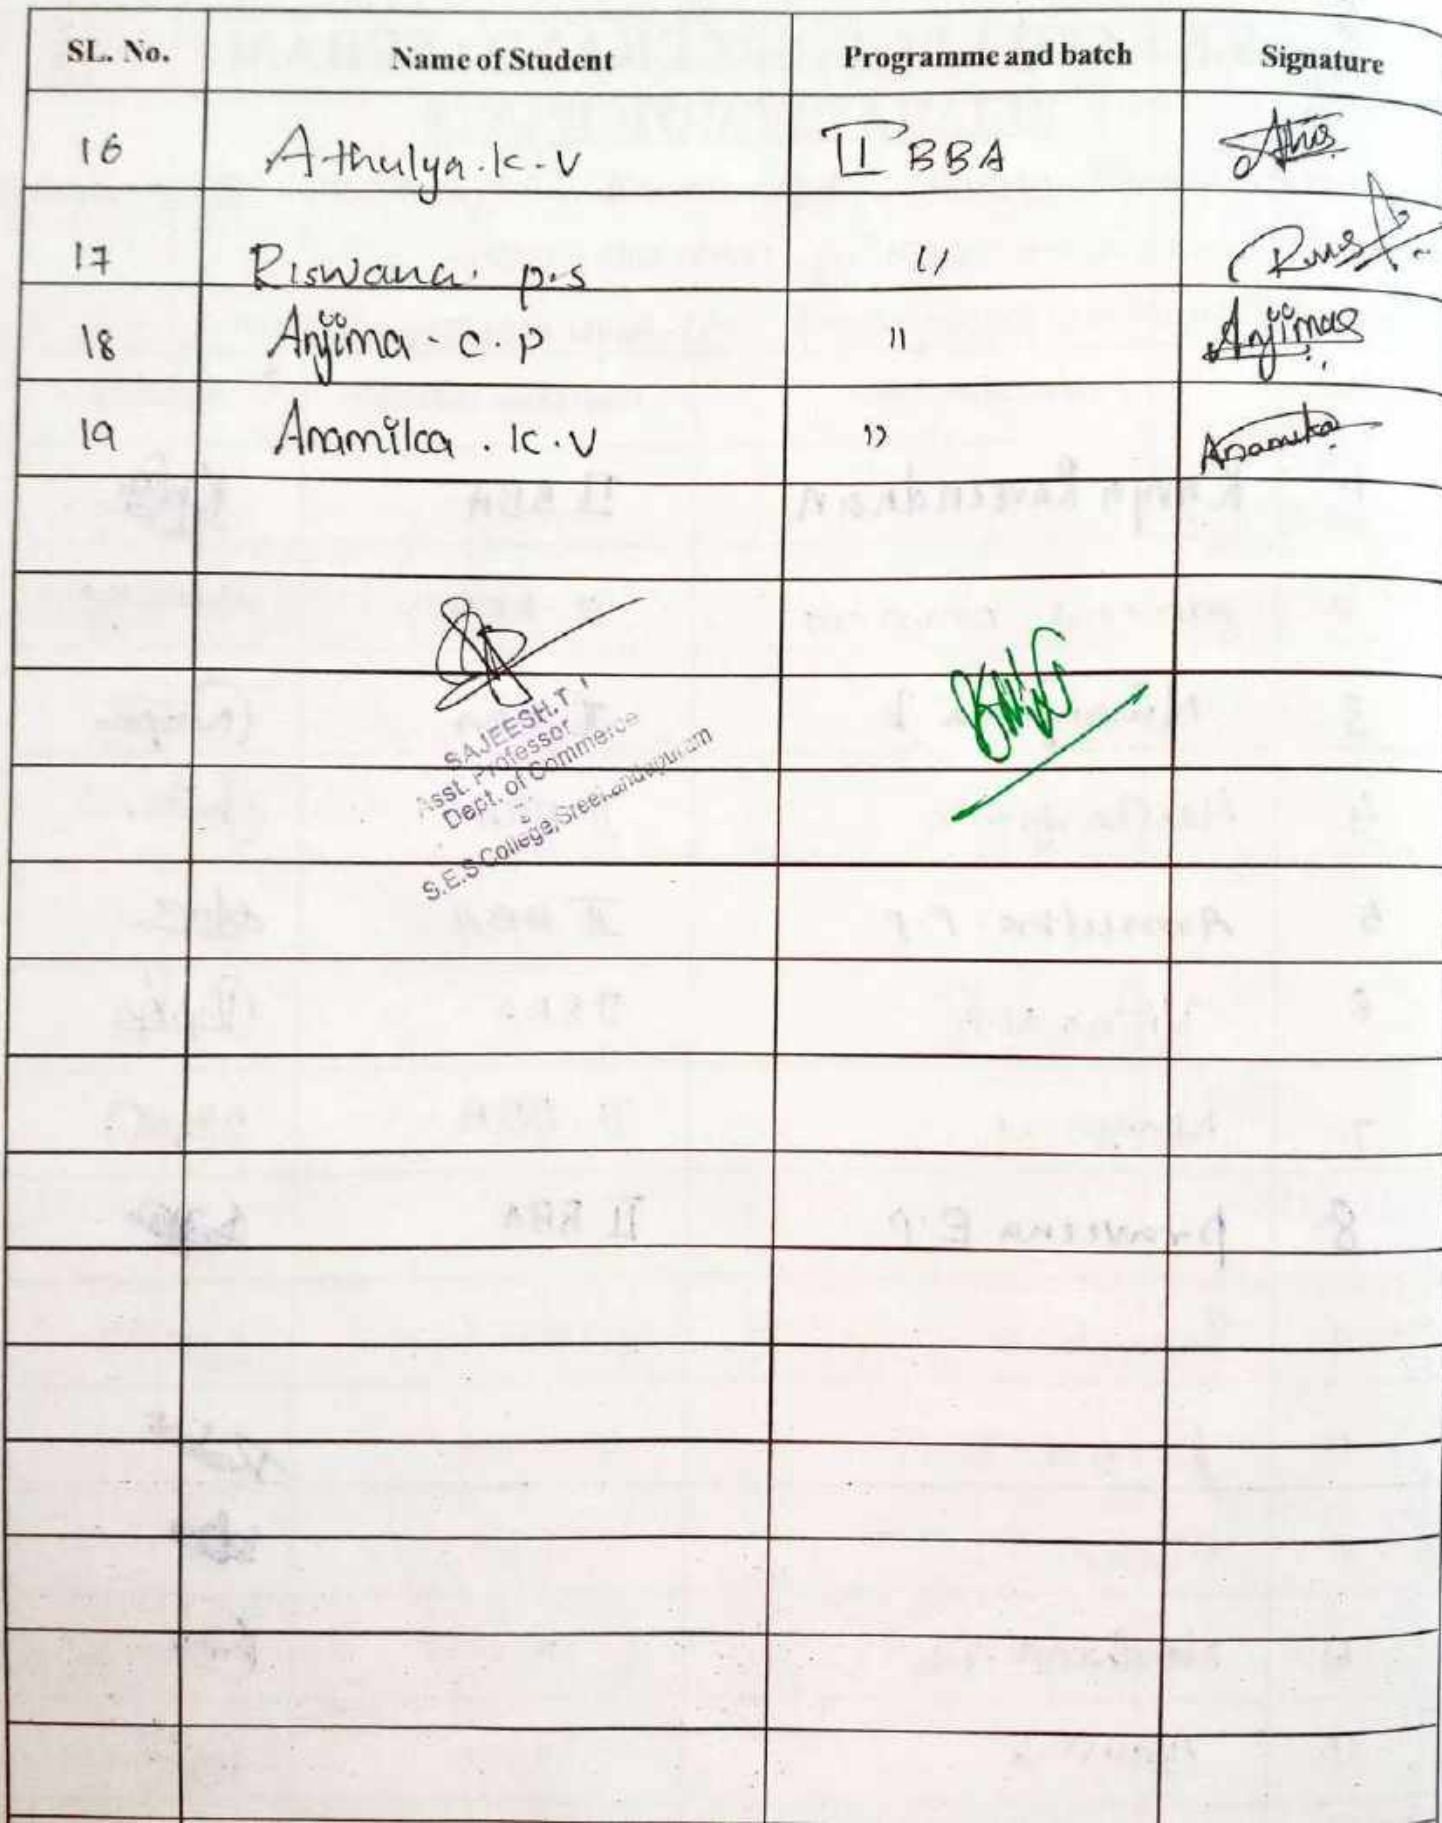 SL. No. Name of Student Programme and batch Signature
16 Athulya.k.v II BBA
17 Riswana. p.s 11
18 Anjima - c.p 11 Anjima
19 Anamika . k.v 11 Anamika
SAJEESH.T
Asst. Professor
Dept. of Commerce
S.E.S College, Sreekandapuram